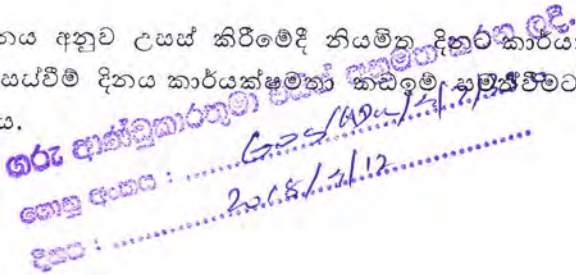 නය අනුව උසස් කිරීමේදී නියමිත දිනට කාර්යා
සස්වීම් දිනය කාර්යක්ෂමතා කඩඉම් සමත්වීමට
ය.
ගරු ආණ්ඩුකාරතුමා විසින් අනුමත කරන ලදී.
ගොනු අංකය :
දිනට : 2018/2/12